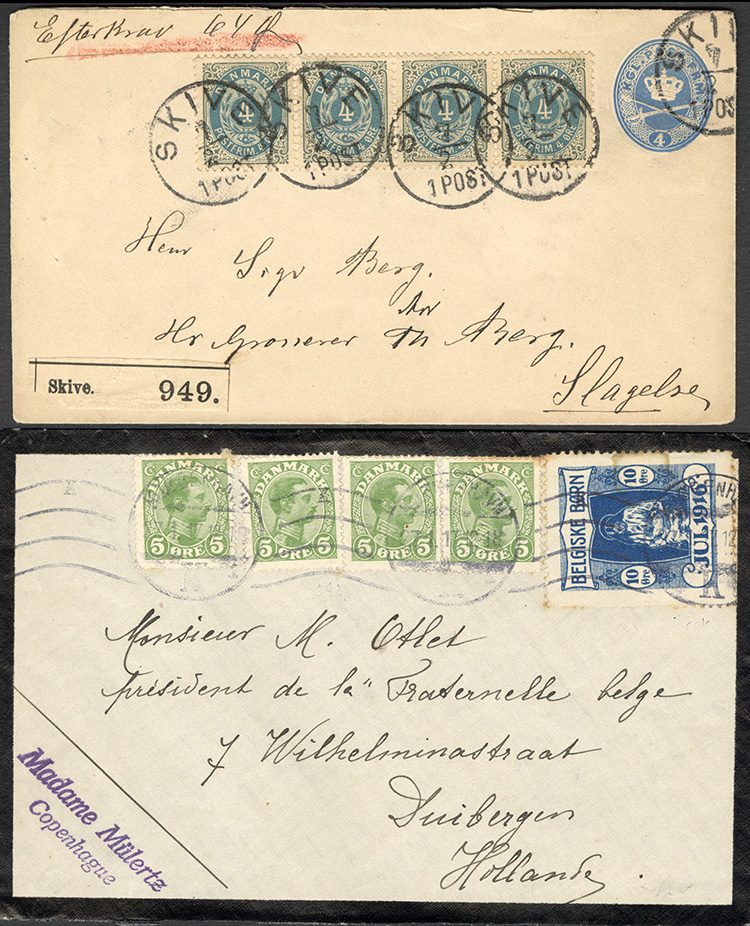 Efterkrav 64 Ø
DANMARK DANMARK DANMARK DANMARK
4 4 4 4
POSTFRIM. 4 ØRE POSTFRIM. 4 ØRE POSTFRIM. 4 ØRE POSTFRIM. 4 ØRE
4
SKIVE SKIVE SKIVE SKIVE SKIVE
1 POST 1 POST 1 POST 1 POST
Herr Sigv Berg.
Adr
Hr Grosserer Th Berg.
Slagelse
Skive. 949.
DANMARK DANMARK DANMARK DANMARK
5 ØRE 5 5 ØRE 5 5 ØRE 5 5 ØRE 5
BELGISKE BØRN
10 Øre 10 Øre
JUL 1916
Monsieur M. Otlet
président de la "Fraternelle belge
7 Wilhelminastraat
Duibergen
Hollande
Madame Mülertz
Copenhague